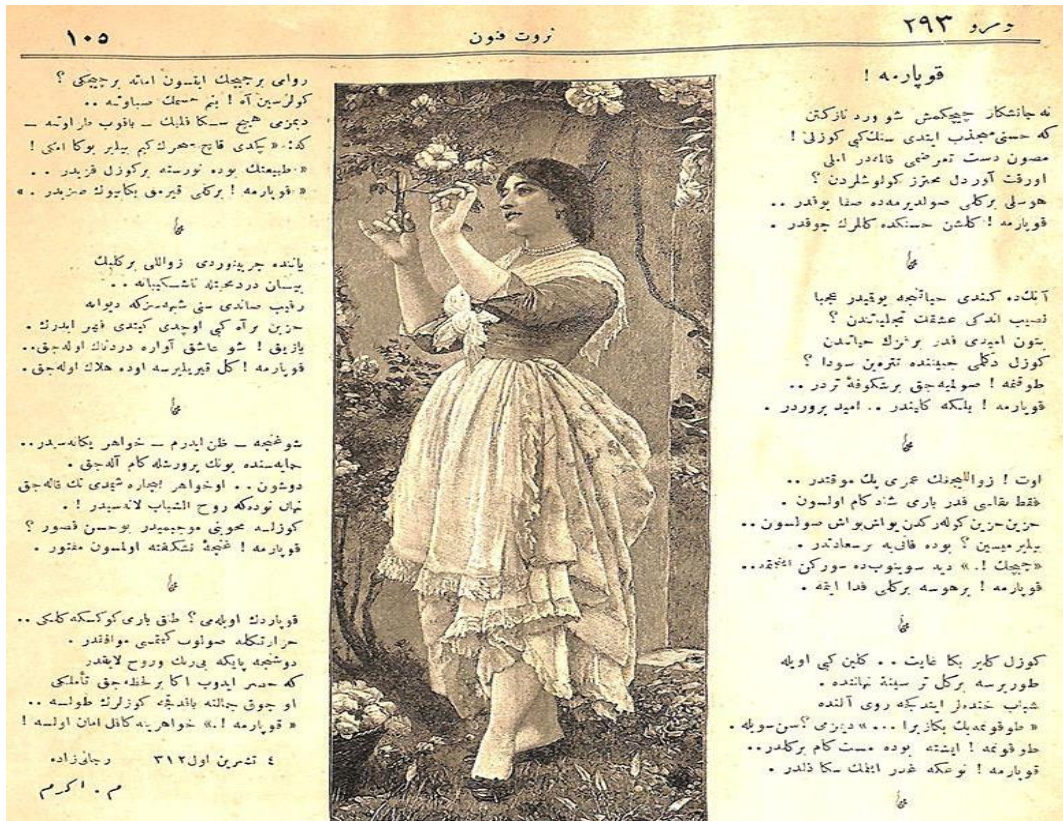 نومرو ٢٩٣
ثروت فنون
١٠٥
قوپارمه !
نه جانشكار چيچكمش شو ورد نازكتن
كه حسنى منجذب ايتدى سنك كبى كوزلى !
مصون دست تعرضمى قالمدر املى
اورقت آوردل محترز كولوشلردن ؟
هوسلى بركلى صولديرمه ده صفا يوقدر ..
قوپارمه ! كلشن حسنكده كللرك چوقدر .
آنك ده كندى حياتنجه يوقيدر عجبا
نصيب اندكى عشقك تجلياتندن ؟
بتون اميدى قدر برخزك حياتدن
كوزل دكلمى جبيننده تتره ين سودا ؟
طوقنمه ! صولميه جق برشكوفهٔ تردر ..
قوپارمه ! بلكه كاپندر .. اميد پروردر .
اوت ! زواللیجنك عمرى پك موقتدر ..
فقط بقاسى قدر بارى شادكام اولسون .
حزين حزين كوله ركدن يواش يواش صولسون ..
بيليرميسين ؟ بوده فانى يه برسعادتدر .
«چيچك !.» ديه سوينوب ده سوركن اينجتمه ..
قوپارمه ! برهوسه بركلى فدا ايتمه .
كوزل كلير بكا غايت .. كلين كبى اويله
طوريرسه بركل تر سينهٔ نهاننده .
شباب خنده لر ايتدكجه روى آلنده
« طوقونمه يك بكا زيرا ... » ديمزمى ؟ سن سويله .
طوقونمه ! ايشته بوده مست كام بركلدر ..
قوپارمه ! نوعكه غدر ايتمك سكا ذلدر .
روامى برچيچك ايقسون امانه برچيچكى ؟
كولرسين آه ! بنم حسمك صباوتنه ..
ديمزمى هيچ سكا قلبك — باقوب طراوتنه —
كه: « چكدى قانچ سحرك كيم بيلير بوكا امكى !
« طبيعتك بوده نورسته بركوزل قزيدر ..
« قوپارمه ! بركلى قيرمق بكا پيوك صزيدر .. »
ياننده چرپينوردى زواللى بركلبك
بيسان دردمحبتله ناشكيبانه ..
رقيب صاندى سنى شبهه سزكه ديوانه
حزين برآه كبى اوچدى كيتدى قهر ايدرك .
يازيق ! شو عاشق آواره دردناك اوله جق ..
قوپارمه ! كل قيريليرسه اوده هلاك اوله جق .
شوغنچه — ظن ايدرم — خواهر يكانه سيدر ..
حمايه سنده بونك پرورشله كام آله جق .
دوشون .. اوخواهر بيچاره شيمدى تك قاله جق
نهال نوده كه روح الشباب لانه سيدر ! .
كوزلسه محوينى موجبميدر بوحسن قصور ؟
قوپارمه ! غنچهٔ نشكفته اولمسون مفتور .
قوپاردك اويله مى ؟ طاق بارى كوكسكه كلمكى ..
حرارتكله صولوب كيتمسى موافقدر .
دوشنجه پايكه بى رنك وروح لايقدر
كه حصر ايدوب اكا برلحظه جق تأملكى
او چوق جمالنه باقدقجه كوزلرك طولسه ..
« قوپارمه !.» خواهرينه كافل امان اولسه !
٤ تشرين اول ٣١٢
رجائى زاده
م . اكرم